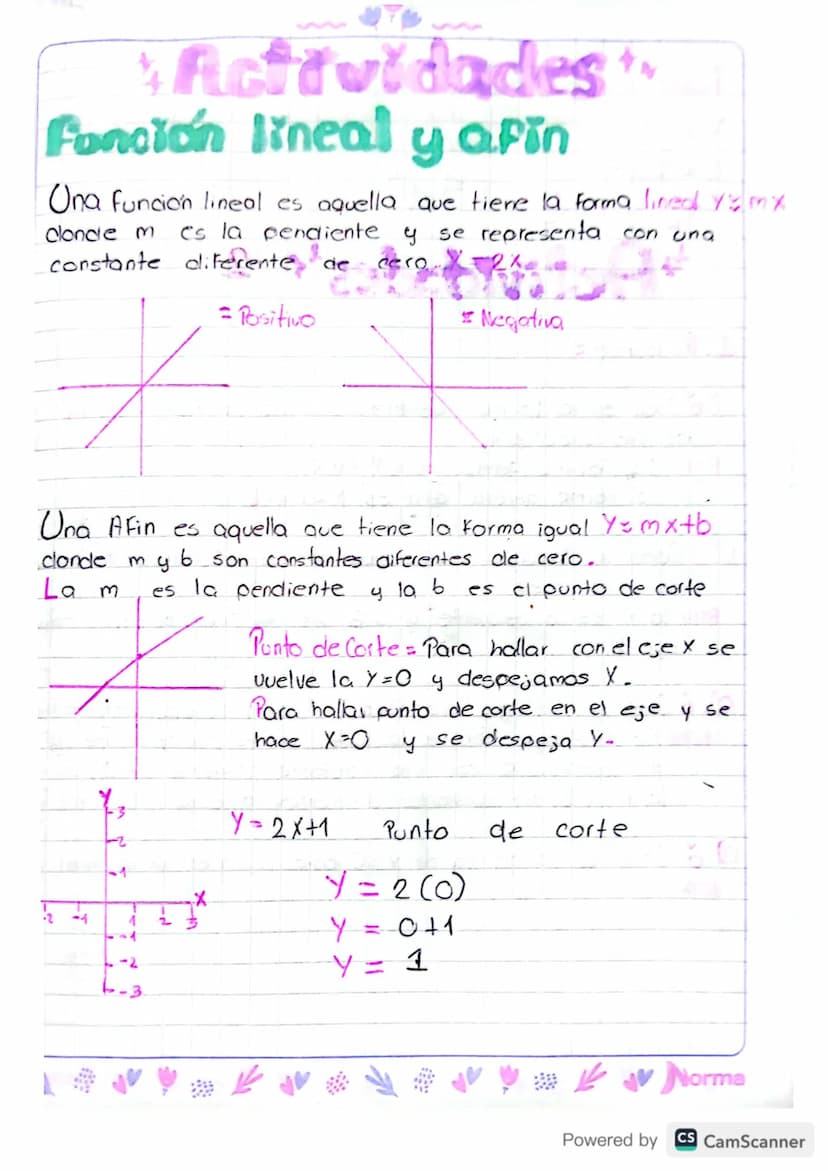 Actividades
Función lineal y afin
Una función lineal es aquella que tiene la forma lineal y=mx
donde m es la pendiente y se representa con una
constante diferente de cero. X=2x
= Positivo
= Negativa
Una AFin es aquella que tiene la forma igual Y=mx+b
donde m y b son constantes diferentes de cero.
La m es la pendiente y la b es el punto de corte
Punto de Corte = Para hallar con el eje x se
vuelve la Y=0 y despejamos X.
Para hallar punto de corte en el eje y se
hace X=0 y se despeja Y.
Y
3
2
1
X
-2 -1 1 2 3
-1
-2
-3
Y = 2X+1 Punto de corte
Y = 2(0)
Y = 0+1
Y = 1
Norma
Powered by CS CamScanner